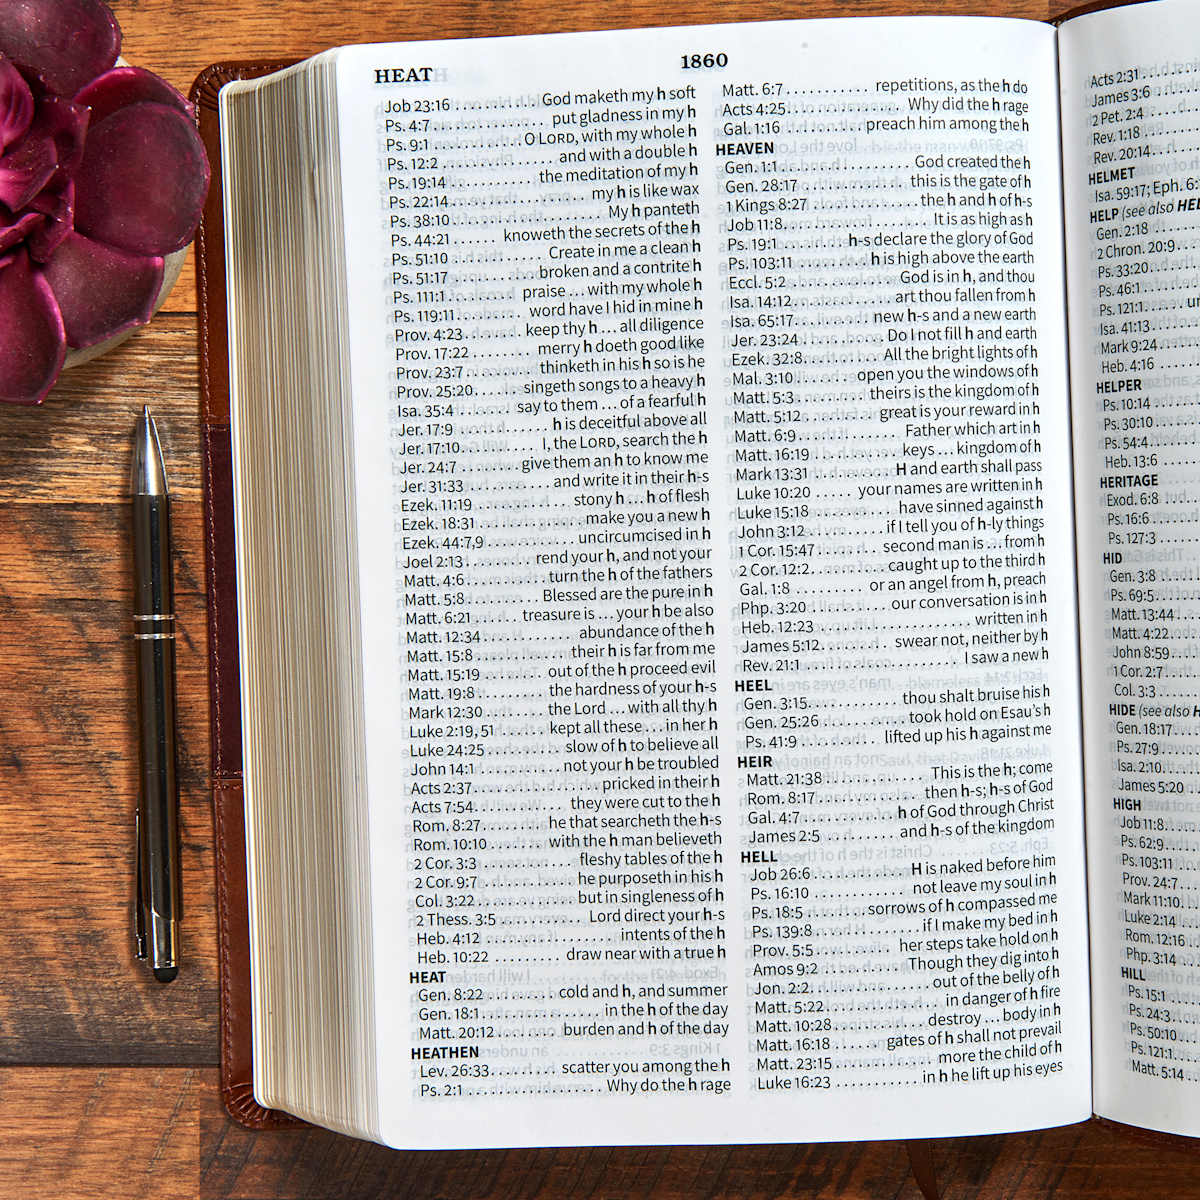 HEAT
1860
Job 23:16 God maketh my h soft
Ps. 4:7 put gladness in my h
Ps. 9:1 O LORD, with my whole h
Ps. 12:2 and with a double h
Ps. 19:14 the meditation of my h
Ps. 22:14 my h is like wax
Ps. 38:10 My h panteth
Ps. 44:21 knoweth the secrets of the h
Ps. 51:10 Create in me a clean h
Ps. 51:17 broken and a contrite h
Ps. 111:1 praise ... with my whole h
Ps. 119:11 word have I hid in mine h
Prov. 4:23 keep thy h ... all diligence
Prov. 17:22 merry h doeth good like
Prov. 23:7 thinketh in his h so is he
Prov. 25:20 singeth songs to a heavy h
Isa. 35:4 say to them ... of a fearful h
Jer. 17:9 h is deceitful above all
Jer. 17:10 I, the LORD, search the h
Jer. 24:7 give them an h to know me
Jer. 31:33 and write it in their h-s
Ezek. 11:19 stony h ... h of flesh
Ezek. 18:31 make you a new h
Ezek. 44:7,9 uncircumcised in h
Joel 2:13 rend your h, and not your
Matt. 4:6 turn the h of the fathers
Matt. 5:8 Blessed are the pure in h
Matt. 6:21 treasure is ... your h be also
Matt. 12:34 abundance of the h
Matt. 15:8 their h is far from me
Matt. 15:19 out of the h proceed evil
Matt. 19:8 the hardness of your h-s
Mark 12:30 the Lord ... with all thy h
Luke 2:19, 51 kept all these ... in her h
Luke 24:25 slow of h to believe all
John 14:1 not your h be troubled
Acts 2:37 pricked in their h
Acts 7:54 they were cut to the h
Rom. 8:27 he that searcheth the h-s
Rom. 10:10 with the h man believeth
2 Cor. 3:3 fleshy tables of the h
2 Cor. 9:7 he purposeth in his h
Col. 3:22 but in singleness of h
2 Thess. 3:5 Lord direct your h-s
Heb. 4:12 intents of the h
Heb. 10:22 draw near with a true h
HEAT
Gen. 8:22 cold and h, and summer
Gen. 18:1 in the h of the day
Matt. 20:12 burden and h of the day
HEATHEN
Lev. 26:33 scatter you among the h
Ps. 2:1 Why do the h rage
Matt. 6:7 repetitions, as the h do
Acts 4:25 Why did the h rage
Gal. 1:16 preach him among the h
HEAVEN
Gen. 1:1 God created the h
Gen. 28:17 this is the gate of h
1 Kings 8:27 the h and h of h-s
Job 11:8 It is as high as h
Ps. 19:1 h-s declare the glory of God
Ps. 103:11 h is high above the earth
Eccl. 5:2 God is in h, and thou
Isa. 14:12 art thou fallen from h
Isa. 65:17 new h-s and a new earth
Jer. 23:24 Do I not fill h and earth
Ezek. 32:8 All the bright lights of h
Mal. 3:10 open you the windows of h
Matt. 5:3 theirs is the kingdom of h
Matt. 5:12 great is your reward in h
Matt. 6:9 Father which art in h
Matt. 16:19 keys ... kingdom of h
Mark 13:31 H and earth shall pass
Luke 10:20 your names are written in h
Luke 15:18 have sinned against h
John 3:12 if I tell you of h-ly things
1 Cor. 15:47 second man is ... from h
2 Cor. 12:2 caught up to the third h
Gal. 1:8 or an angel from h, preach
Php. 3:20 our conversation is in h
Heb. 12:23 written in h
James 5:12 swear not, neither by h
Rev. 21:1 I saw a new h
HEEL
Gen. 3:15 thou shalt bruise his h
Gen. 25:26 took hold on Esau's h
Ps. 41:9 lifted up his h against me
HEIR
Matt. 21:38 This is the h; come
Rom. 8:17 then h-s; h-s of God
Gal. 4:7 h of God through Christ
James 2:5 and h-s of the kingdom
HELL
Job 26:6 H is naked before him
Ps. 16:10 not leave my soul in h
Ps. 18:5 sorrows of h compassed me
Ps. 139:8 if I make my bed in h
Prov. 5:5 her steps take hold on h
Amos 9:2 Though they dig into h
Jon. 2:2 out of the belly of h
Matt. 5:22 in danger of h fire
Matt. 10:28 destroy ... body in h
Matt. 16:18 gates of h shall not prevail
Matt. 23:15 more the child of h
Luke 16:23 in h he lift up his eyes
Acts 2:31
James 3:6
2 Pet. 2:4
Rev. 1:18
Rev. 20:14
HELMET
Isa. 59:17; Eph. 6:
HELP (see also HEL
Gen. 2:18
2 Chron. 20:9
Ps. 33:20
Ps. 46:1
Ps. 121:1
Isa. 41:13
Mark 9:24
Heb. 4:16
HELPER
Ps. 10:14
Ps. 30:10
Ps. 54:4
Heb. 13:6
HERITAGE
Exod. 6:8
Ps. 16:6
Ps. 127:3
HID
Gen. 3:8
Ps. 69:5
Matt. 13:44
Matt. 4:22
John 8:59
1 Cor. 2:7
Col. 3:3
HIDE (see also H
Gen. 18:17
Ps. 27:9
Isa. 2:10
James 5:20
HIGH
Job 11:8
Ps. 62:9
Ps. 103:11
Prov. 24:7
Mark 11:10
Luke 2:14
Rom. 12:16
Php. 3:14
HILL
Ps. 15:1
Ps. 24:3
Ps. 50:10
Ps. 121:1
Matt. 5:14